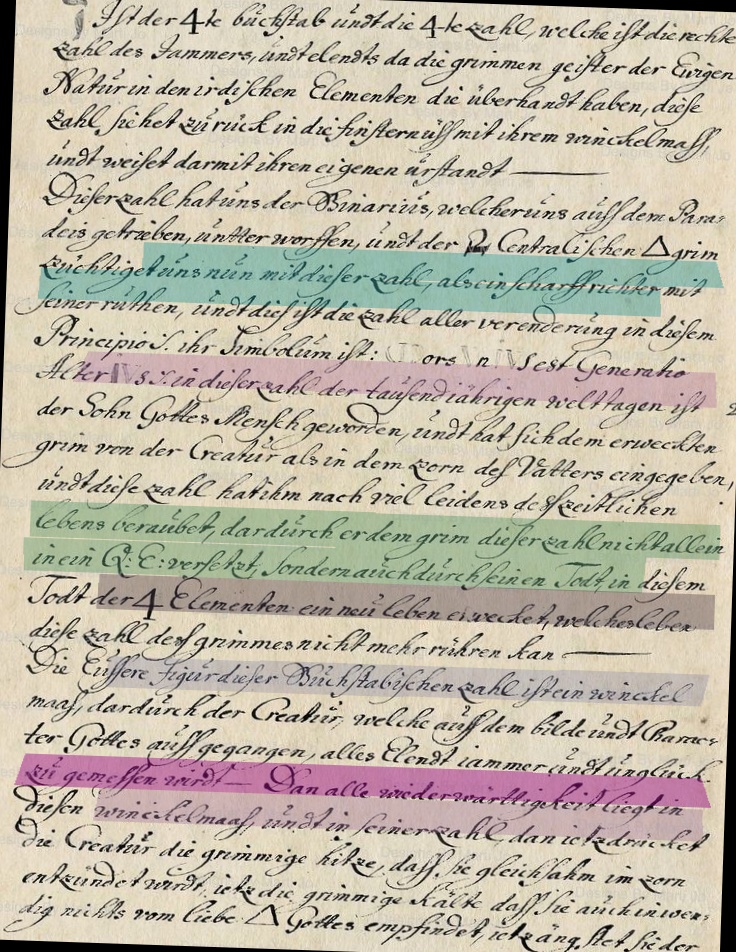 Ist der 4te buchstab undt die 4te zahl, welche ist die rechte
zahl des Jammers, undt elendts da die grimmen geister der Ewigen
Natur in den irdischen Elementen die überhandt haben, diese
zahl sichet zurück in die finsternüss mit ihrem winckelmass,
undt weiset darmit ihren eigenen urstandt —
Dieser zahl hat uns der Binarius, welcher uns auss dem Para=
deis getrieben, untter worffen, undt der Centralischen △ grim
züchtiget uns nun mit dieser zahl, als ein scharffrichter mit
seiner ruthen, undt dis ist die zahl aller verenderung in diesem
Principio S. ihr Simbolum ist: ors n s est Generatio
Alter s S. in dieser zahl der tausendt jährigen welt tagen ist
der Sohn Gottes Mensch geworden, undt hat sich dem erweckten
grim von der Creatur als in dem zorn dess Vatters eingegeben,
undt diese zahl hat ihm nach viel leidens dess zeitlichen
lebens beraubet, dardurch er dem grim dieser zahl nicht allein
in ein Q: E: versetzt, sondern auch durch seinen Todt, in diesem
Todt der 4 Elementen ein neu leben erwecket, welches leben
diese zahl dess grimmes nicht mehr rühren kan —
Die Eussere figur dieser Buchstabischen zahl ist ein winckel
maass, dardurch der Creatur, welche auss dem bilde undt Charac=
ter Gottes aussgegangen, alles Elendt jammer undt unglück
zu gemessen wirdt — Dan alle wiederwärttigkeit liegt in
diesen winckelmaass, undt in seiner zahl, dan ietz drücket
die Creatur die grimmige hitze, dass sie gleichsahm im zorn
entzündet wirdt, ietz die grimmige kälte dass sie auch inwen=
dig nichts vom liebe △ Gottes empfindet, ietz ängstet sie der